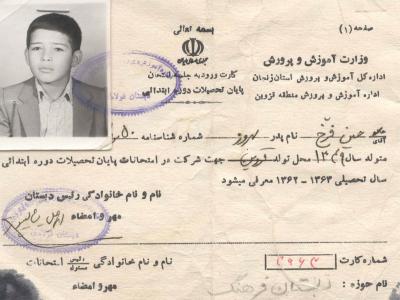 صفحه (۱)
بسمه تعالی
وزارت آموزش و پرورش
اداره کل آموزش و پرورش استان زنجان
اداره آموزش و پرورش منطقه قزوین
کارت ورود به جلسه امتحان
پایان تحصیلات دوره ابتدائی
آقای حسن فرخ نام پدر بهروز شماره شناسنامه
متولد سال ۱۳۴۹ محل تولد قزوین جهت شرکت در امتحانات پایان تحصیلات دوره ابتدائی
سال تحصیلی ۱۳۶۳ - ۱۳۶۲ معرفی میشود
نام و نام خانوادگی رئیس دبستان
مهر و امضاء
شماره کارت ۳۹۶۳
نام و نام خانوادگی رئیس امتحانات
نام حوزه : دبستان فرهنگ
مهر و امضاء